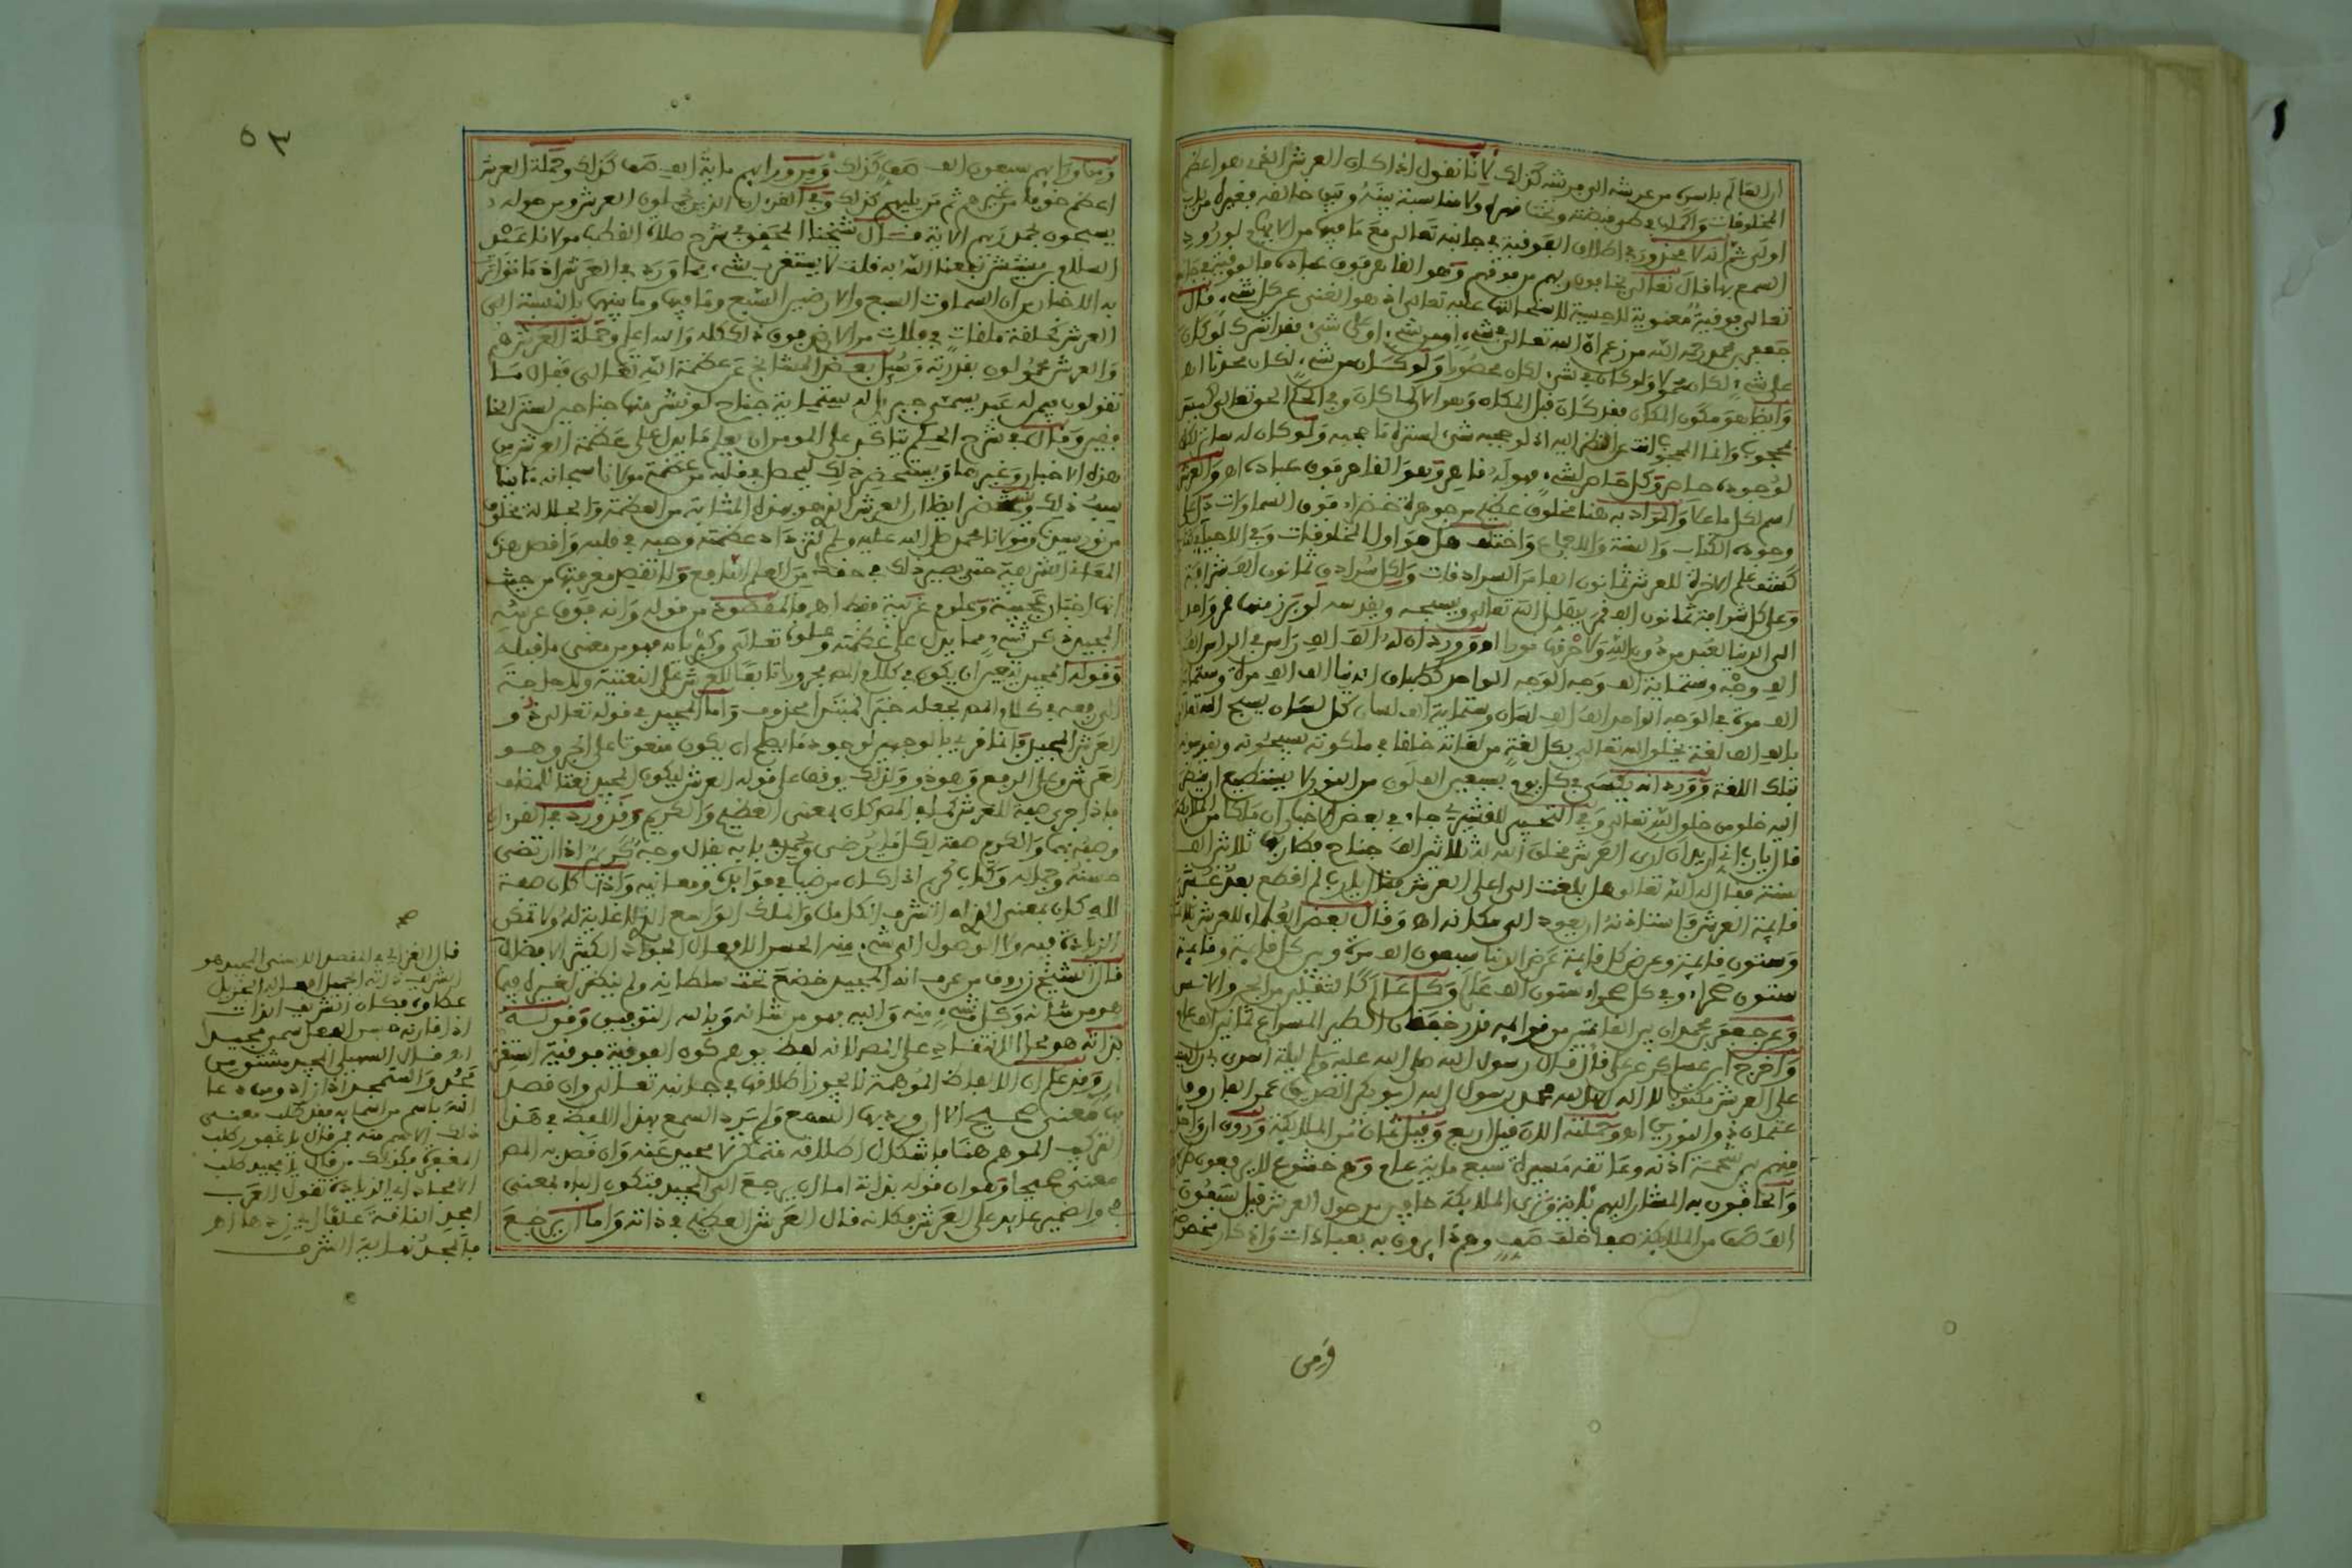 ان العالم باسره من عرشه الى فرشه كذلك لانا نقول اذا كان العرش الذي هو اعظم
المخلوقات واكملها في طي قبضته وتحت قهره ولا مناسبة بينه وبين خالقه فغيره من باب
اولى ثم انه لا محذور في اطلاق الفوقية في جانبه تعالى مع ما فيها من الايهام لورود
السمع بها قال تعالى يخافون ربهم من فوقهم وهو القاهر فوق عباده فالفوقية في حقه
تعالى فوقية معنوية لا حسية لاستحالتها عليه تعالى اذ هو الغني عن كل شيء قال
جعفر بن محمد رحمه الله من زعم ان الله تعالى في شيء او من شيء او على شيء فقد اشرك لو كان
على شيء لكان محمولا ولو كان في شيء لكان محصورا ولو كان من شيء لكان محدثا اه
وايضا هو مكون المكان فقد كان قبل المكان وهو الآن كما كان وفي الحكم الحق تعالى ليس
بمحجوب وانما المحجوب انت عن النظر اليه اذ لو حجبه شيء لستره ما حجبه ولو كان له ساتر لكان
لوجوده حاصر وكل حاصر لشيء فهو له قاهر وهو القاهر فوق عباده اه والعرش
اسم لكل ما علا والمراد به هنا مخلوق عظيم من جوهرة خضراء فوق السماوات دل على
وجوده الكتاب والسنة والاجماع واختلف هل هو اول المخلوقات وفي
كشف علم الاخرة للعرش ثمانون الفا من السرادقات ولكل سرادق ثمانون الف شرافة
وعلى كل شرافة ثمانون الف قمر يهلل الله تعالى ويسبحه ويقدسه لو برز منها قمر واحد
الى الدنيا لعبد من دون الله ولاحرق نورا اه وورد ان له الف الف راس في الراس الف
الف وجه وستماية الف وجه الوجه الواحد كطباق الدنيا الف الف مرة وستماية
الف مرة في الوجه الواحد الف الف لسان وستماية الف لسان كل لسان يسبح الله تعالى
بالف الف لغة يخلق الله تعالى بكل لغة من لغاته خلقا في ملكوته يسبحونه ويقدسونه
بتلك اللغة وورد انه يكسى في كل يوم سبعين الف لون من النور لا يستطيع ان ينظر
اليه خلق من خلق الله تعالى وفي التحبير للقشيري جاء في بعض الاخبار ان ملكا من الملايكة
قال يا رب اني اريد ان ارى العرش فخلق الله له ثلاثين الف جناح فطار بها ثلاثين الف
سنة فقال له الله تعالى هل بلغت الى اعلى العرش فقال يا رب لم اقطع بعد عشر
قايمة العرش فاستاذنه ان يعود الى مكانه اه وقال بعض العلماء للعرش ثلاثماية
وستون قايمة وعرض كل قايمة عرض الدنيا سبعون الف مرة وبين كل قايمة وقايمة
ستون صحراء وفي كل صحراء ستون الف عالم وكل عالم كالثقلين من الجن والانس
وعن جعفر بن محمد ان بين القايمتين من قوائمه قدر خفقان الطير المسرع ثمانين الف عام
واخرج ابن عساكر عن علي قال قال رسول الله صلى الله عليه وسلم ليلة اسري بي رايت
على العرش مكتوبا لا اله الا الله محمد رسول الله ابو بكر الصديق عمر الفاروق
عثمان ذو النورين اه وحملته الان قيل اربع وقيل ثمان من الملايكة وروي ان واحدا
منهم بين شحمة اذنه وعاتقه مسيرة سبع ماية عام وهم خشوع لا يرفعون طرفهم
والحافون به المشار اليهم بآية وترى الملايكة حافين من حول العرش قيل سبعون
الف صف من الملايكة صفا خلف صف وهم دايرون به بعبادات واذكار مخصوصة
ومن
٥٣
ومن ورايهم سبعون الف صف كذلك ومن ورايهم ماية الف صف كذلك وحملة العرش
اعظم خوفا من غيرهم ثم من يليهم كذلك وفي القرءان الذين يحملون العرش ومن حوله
يسبحون بحمد ربهم الاية قال شيخنا المحقق في شرح صلاة القطب مولانا عبد
السلام بن مشيش نفعنا الله به قلت لا يستغرب شيء مما ورد في العرش اذ ما تواترت
به الاخبار من ان السماوات السبع والارضين السبع وما فيها وما بينها بالنسبة الى
العرش كحلقة ملقات في فلات من الارض فوق ذلك كله والله اعلم وحملة العرش هم
والعرش محمولون بقدرته وسيل بعض المشايخ عن عظمة الله تعالى فقال ما
تقولون فيمن له عبد يسمى جبريل له ستماية جناح لو نشر منها جناحين لستر الخا
فقين وقال في شرح الحكم يتاكد على المومن ان يعلم ما يدل على عظمة العرش من
هذه الاخبار وغيرها ويستحضر ذلك ليحصل في قلبه من عظمة مولانا سبحانه ما يناسب
ذلك ويستحضر ايضا ان العرش الذي هو بهذه المثابة من العظمة والجلالة مخلوق
من نور سيدنا ومولانا محمد صلى الله عليه وسلم لتزداد عظمته وحبه في قلبه وافضل هذه
المعارف الشريفة حتى يصير ذلك في حفظ من العلم النافع ولا تقصر معرفتها من حيث
انها اخبار عجيبة وعلوم غريبة فقط اه فالمقصود من قوله وانه فوق عرشه
المجيد ذكر شيء مما يدل على عظمته وعلوه تعالى وكبريائه فهو من معنى ما قبله
وقوله المجيد يتعين ان يكون في كلام المص مجرورا تابعا للعرش على النعتية ولا حاجة
الى رفعه في كلام المص بجعله خبرا لمبتدإ محذوف واما المجيد في قوله تعالى ذو
العرش المجيد فانما قرئ بالوجهين لوجود ما يصلح ان يكون منعوتا على الجر وهو
العرش وعلى الرفع وهو ذو ولذلك يوقف على قوله العرش ليكون المجيد نعتا للمضاف
فاذا جرى صفة للعرش كما في المص كان بمعنى العظيم والكريم وقد ورد في القرءان
وصفه بهما والكرم صفة لكل ما يرضى ويحمد في بابه يقال وجه كريم اذا ارتضى
حسنه وجماله وكتاب كريم اذا كان مرضيا في فوايده ومعانيه واذا كان صفة
لله كان بمعنى الذي له الشرف الكامل والملك الواسع الذي لا غاية له ولا تمكن
الزيادة فيه ولا الوصول الى شيء منه الحسن الافعال الجواد الكثير الافضال
قال الشيخ زروق من عرف انه المجيد خضع تحت سلطانه ولم ينظر لغيره فيما
هو من شانه وكل شيء منه واليه فهو من شانه وبالله التوفيق وقوله
بذاته هو محل الانتقاد على المص لانه لفظ يوهم كون الفوقية فوقية استقرار
وقد علم ان الالفاظ الموهمة لا يجوز اطلاقها في جانبه تعالى وان قصد
بها معنى صحيح الا ان ورد بها السمع ولم يرد السمع بهذا اللفظ في هذا
التركيب الموهم هنا فاشكال اطلاقه متمكن لا محيد عنه وان قصد به المص
معنى صحيحا وهو ان قوله بذاته اما ان يرجع الى المجيد فتكون الباء بمعنى
في والضمير عايد على العرش فكانه قال العرش العظيم في ذاته واما ان يرجع
قال الغزالي في المقصد الاسنى المجيد هو
الشريف ذاته الجميل افعاله الجزيل
عطاؤه فكان الشريف الذات
اذا قارنه حسن الفعل سمي مجيدا
اه وقال السهيلي المجيد مشتق من
مجد واستمجد اذا زاد ومن دعا
الله باسم من اسمايه فقد طلب معنى
ذلك الاسم منه فمن قال يا غفور طلب
المغفرة وكذلك من قال يا مجيد طلب
الامجاد اي الزيادة تقول العرب
امجد الناقة علفا اي زدها اه
فالمجد نهاية الشرف